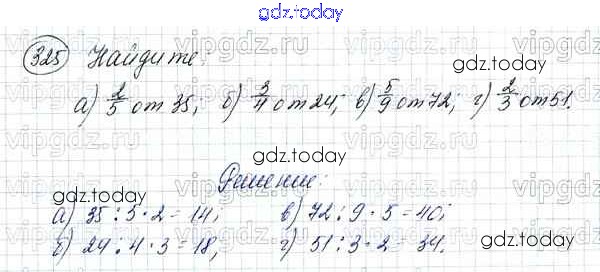 gdz.today
325 Найдите:
а) 2/5 от 35; б) 3/4 от 24; в) 5/9 от 72; г) 2/3 от 51.
Решение:
а) 35 : 5 · 2 = 14; в) 72 : 9 · 5 = 40;
б) 24 : 4 · 3 = 18; г) 51 : 3 · 2 = 34.
vipgdz.ru
gdz.today
gdz.today
gdz.today
gdz.today
gdz.today